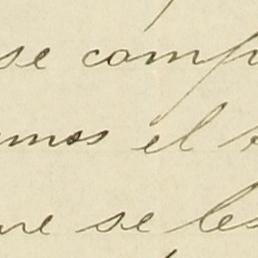 se comp
mos el
se les